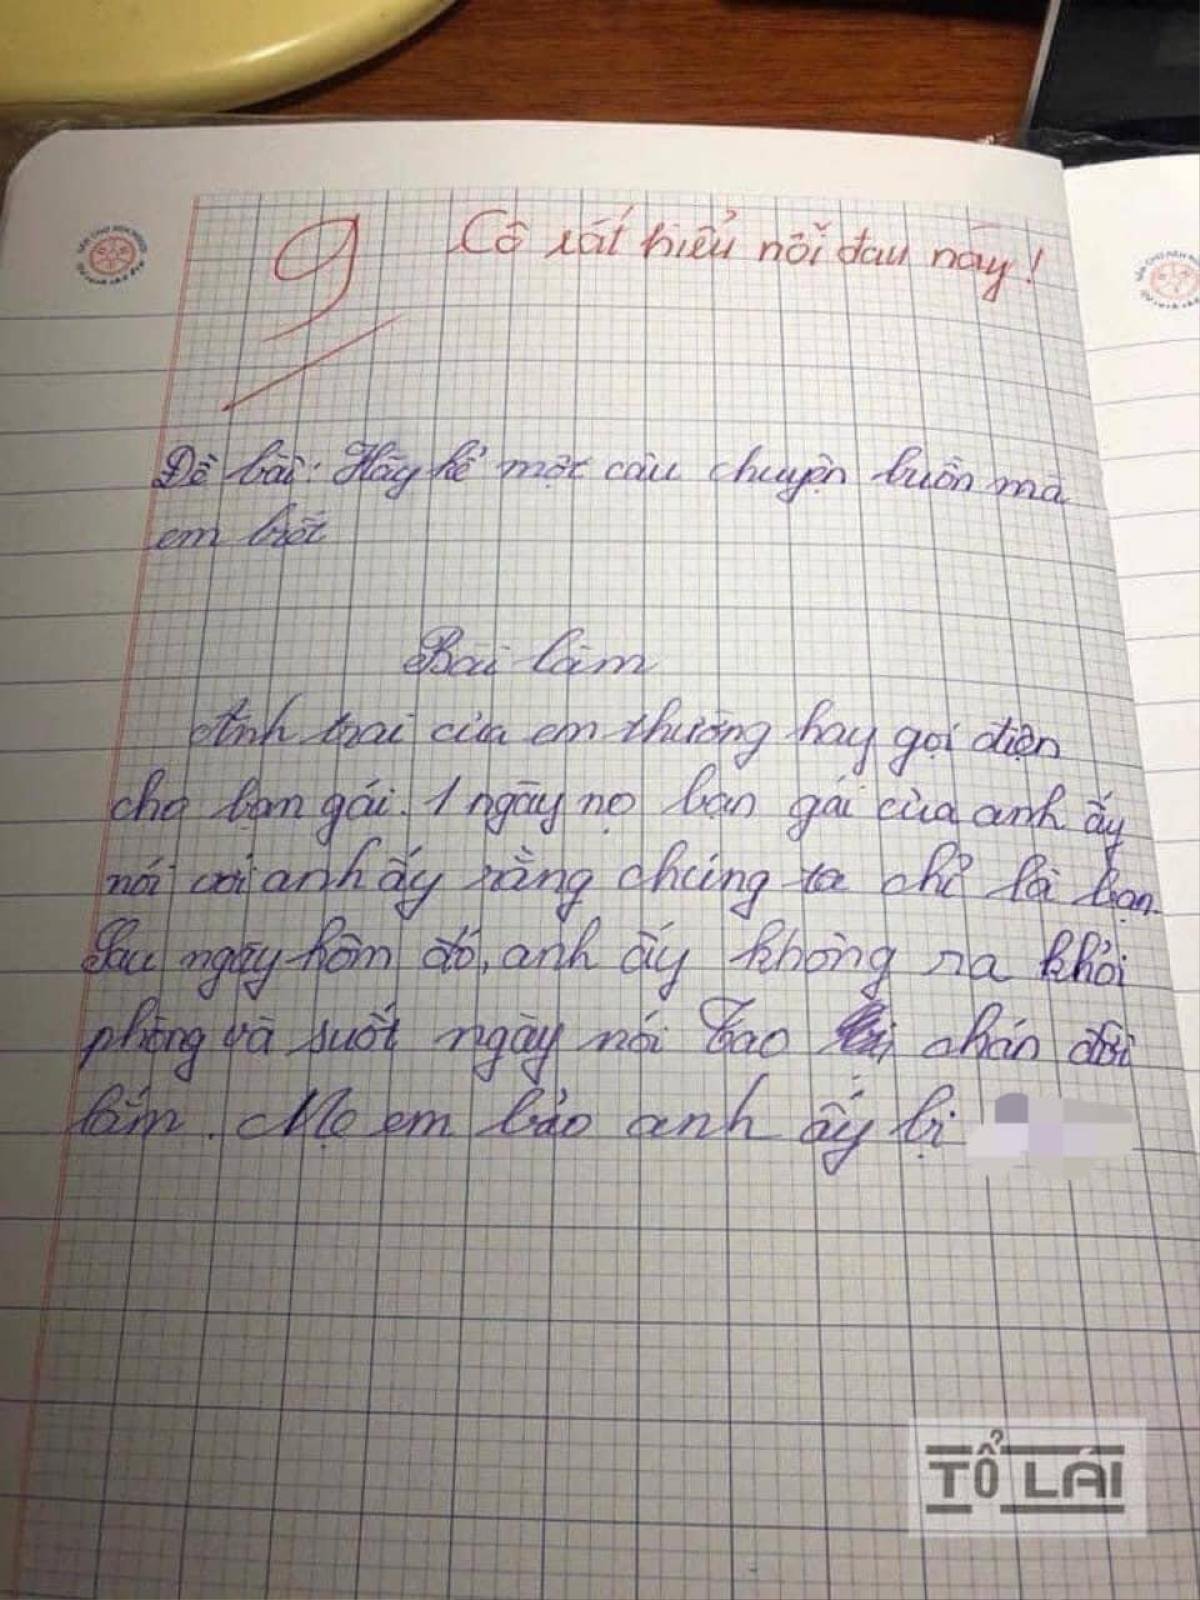 9 Cô rất hiểu nỗi đau này!
Đề bài: Hãy kể một câu chuyện buồn mà
em biết
Bài làm
Anh trai của em thường hay gọi điện
cho bạn gái. 1 ngày nọ bạn gái của anh ấy
nói với anh ấy rằng chúng ta chỉ là bạn.
Sau ngày hôm đó, anh ấy không ra khỏi
phòng và suốt ngày nói Tao chán đời
lắm. Mẹ em bảo anh ấy bị
TỔ LÁI